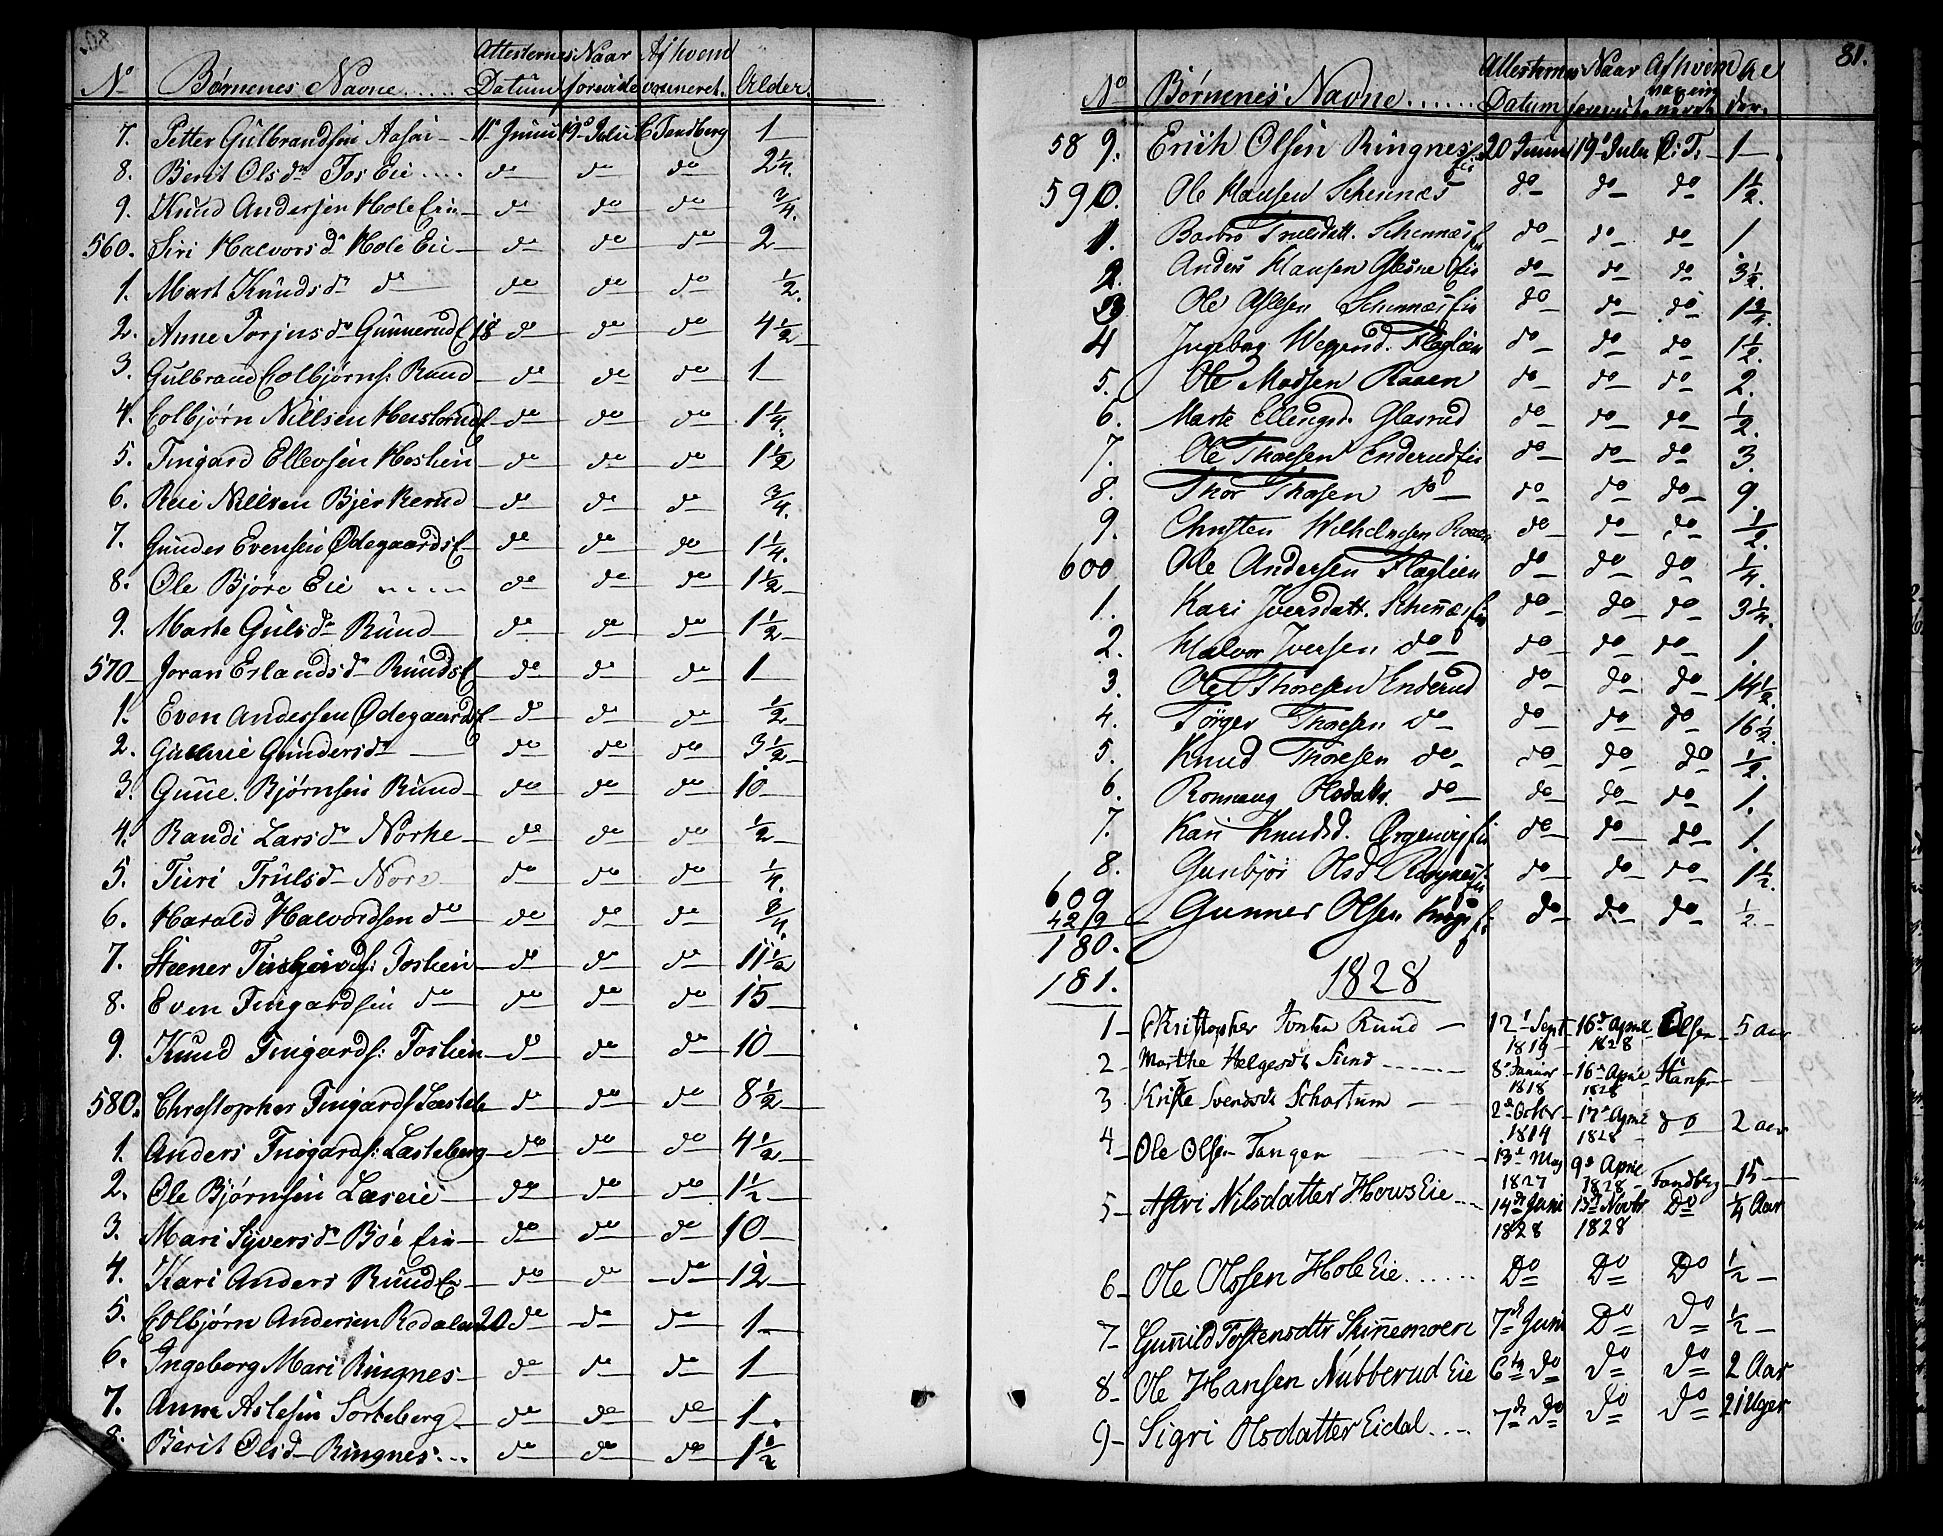 No Børnenes Navne Attesternes Datum Naar foreviste Af hvem vacineret Alder
7. Petter Gulbrandsen 11te Junii 19de Julii C Tandberg 1
8. Berit Olsdr Fos Eie do do do 2 1/4
9. Knud Andersen Hole Eie do do do 3/4
560. Siri Halvorsdr Hole Eie do do do 2
1. Mart Knudsdr do do do do 1/2
2. Anne Torjusdr Gunnerud E 18 do do do 4 1/2
3. Gulbrand Colbjørns: Ruud do do do 1
4. Colbjørn Nillsen do do do 1 1/4
5. Tingard Ellevsen do do do 1 1/2
6. Nillsen Bjerkerud do do do 3/4
7. Gunder Evensen Ødegaards E do do do 1 1/4
8. Ole Bjøre Eie do do do 1 1/2
9. Marte Gulsdr Ruud do do do 1 1/2
570 Joran Erlandsdr Ruuds E do do do 1
1. Even Andersen Ødegaards E do do do 1/2
2. Gundersdr do do do 3 1/2
3. Bjørnsen Ruud do do do 10
4. Randi Larsdr Norhe do do do 1/2
5. Turi Trulsdr Nore do do do 1/4
6. Harald Halvordsen do do do do 3/4
7. Steener Tingards: Foslien do do do 11 1/2
8. Even Tingardsen do do do do 15
9. Knud Tingards: Foslien do do do 10
580. Christopher Tingards do do do 8 1/2
1. Anders Tingards: Lesteberg do do do 4 1/2
2. Ole Bjørnsen do do do 1 1/2
3. Mari Syversdr Bøe Eie do do do 10
4. Kari Anders Ruud E do do do 12
5. Colbjørn Andersen 20 do do do 1
6. Ingeborg Mari Ringnes do do do 1
7. Anne Aslesen Sorteberg do do do 1
8. Berit Olsd Ringnes do do do 1 1/2
81.
No Børnenes Navne Attesternes Datum Naar Af hvem Alder
589. Erich Olsen Ringnes Eie 20 Junii 19de Julii C: T. 1
590. Ole Hansen do do do 1 1/2
1. Barbro Trulsdatt. do do do 1
2. Anders Hansen Glesne Eie do do do 3 1/2
3 Ole do do do 1 3/4
4 Ingeborg do do do 1 1/2
5. Ole Madsen Raaen do do do 2.
6. Marte Ellingsd. Glasrud do do do 1/2
7. Ole Thoresen Enderud Eie do do do 3
8. Thor Thoresen do do do do 9.
9. Christen Wilhelmsen Raaen do do do 1/2
600 Ole Andersen do do do 1/4
1. Kari Iversdatt. do do do 3 1/4
2. Halvor Iversen do do do do 1.
3. Ole Thoresen Enderud do do do 14 1/2
4. Torger Thoresen do do do do 16 1/2
5. Knud Thoresen do do do do 1/2
6. Ronnaug Olsdattr. do do do do 1.
7. Kari Knudsd. Ørgenvig Eie do do do 1.
8. Gunbjør Olsd Ringnes Eie do do do 1 1/2
609 Gunner Olsen do do do 1/2
429
180.
181.
1828
1 Christopher Ruud 12te Sept 1819 16de April 1828 Olsen 5 aar
2 Marthe Helgesdtr Sund 8de Januar 1818 16de April 1828 Hansen
3 Svendsdr Schartum 2de Octbr 1814 17de April 1828 do 2 aar
4 Ole Olsen Tangen 13de May 1827 9de April 1828 Tandberg 15
5 Astri Nilsdatter Hovs Eie 14de Juni 1828 13de Novbr 1828 Do 1/4 Aar
6 Ole Olssen Hole Eie Do Do Do 1/2
7 Gunild Tostensdtr Skinnemoen 7de Juni Do Do 1/2
8 Ole Hansen Nubberud Eie 6te do do do 2 Aar
9 Sigri Olsdatter Eidal 7de do do do 21 Uger